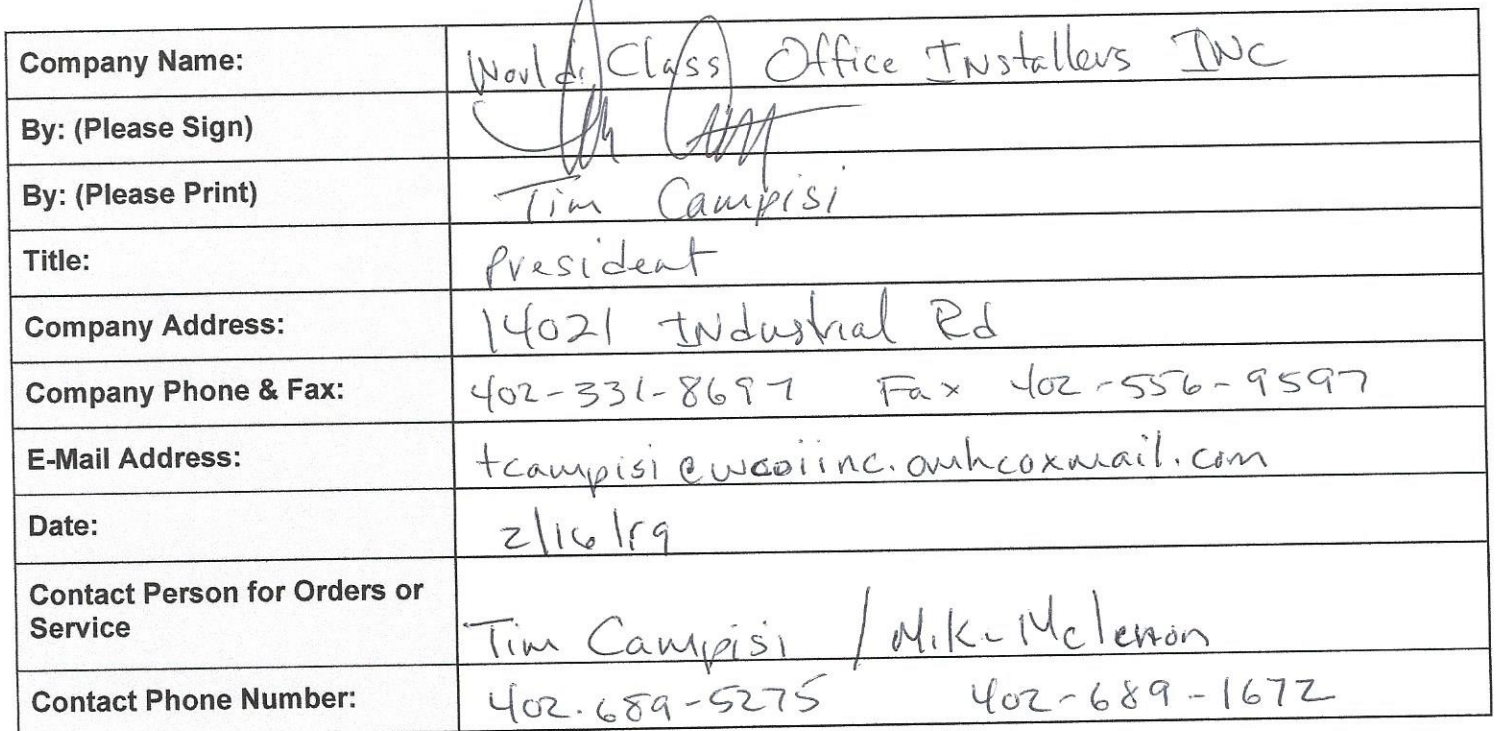 Company Name: World Class Office Installers INC
By: (Please Sign)
By: (Please Print) Tim Campisi
Title: President
Company Address: 14021 Industrial Rd
Company Phone & Fax: 402-331-8697 Fax 402-556-9597
E-Mail Address: tcampisi@wcoiinc.omhcoxmail.com
Date: 2/16/19
Contact Person for Orders or
Service Tim Campisi / Mike Mclennon
Contact Phone Number: 402.689-5275 402-689-1672